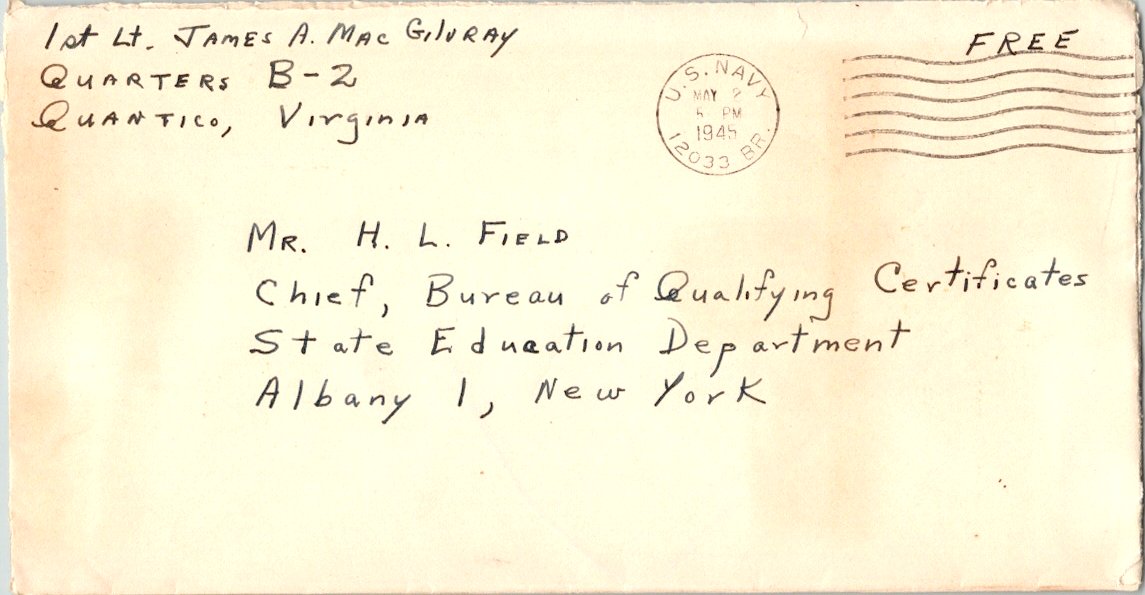 1st Lt. JAMES A. MAC GILVRAY
QUARTERS B-2
QUANTICO, Virginia
FREE
U.S. NAVY
MAY 2
5 PM
1945
12033 BR.
MR. H. L. FIELD
Chief, Bureau of Qualifying Certificates
State Education Department
Albany 1, New York